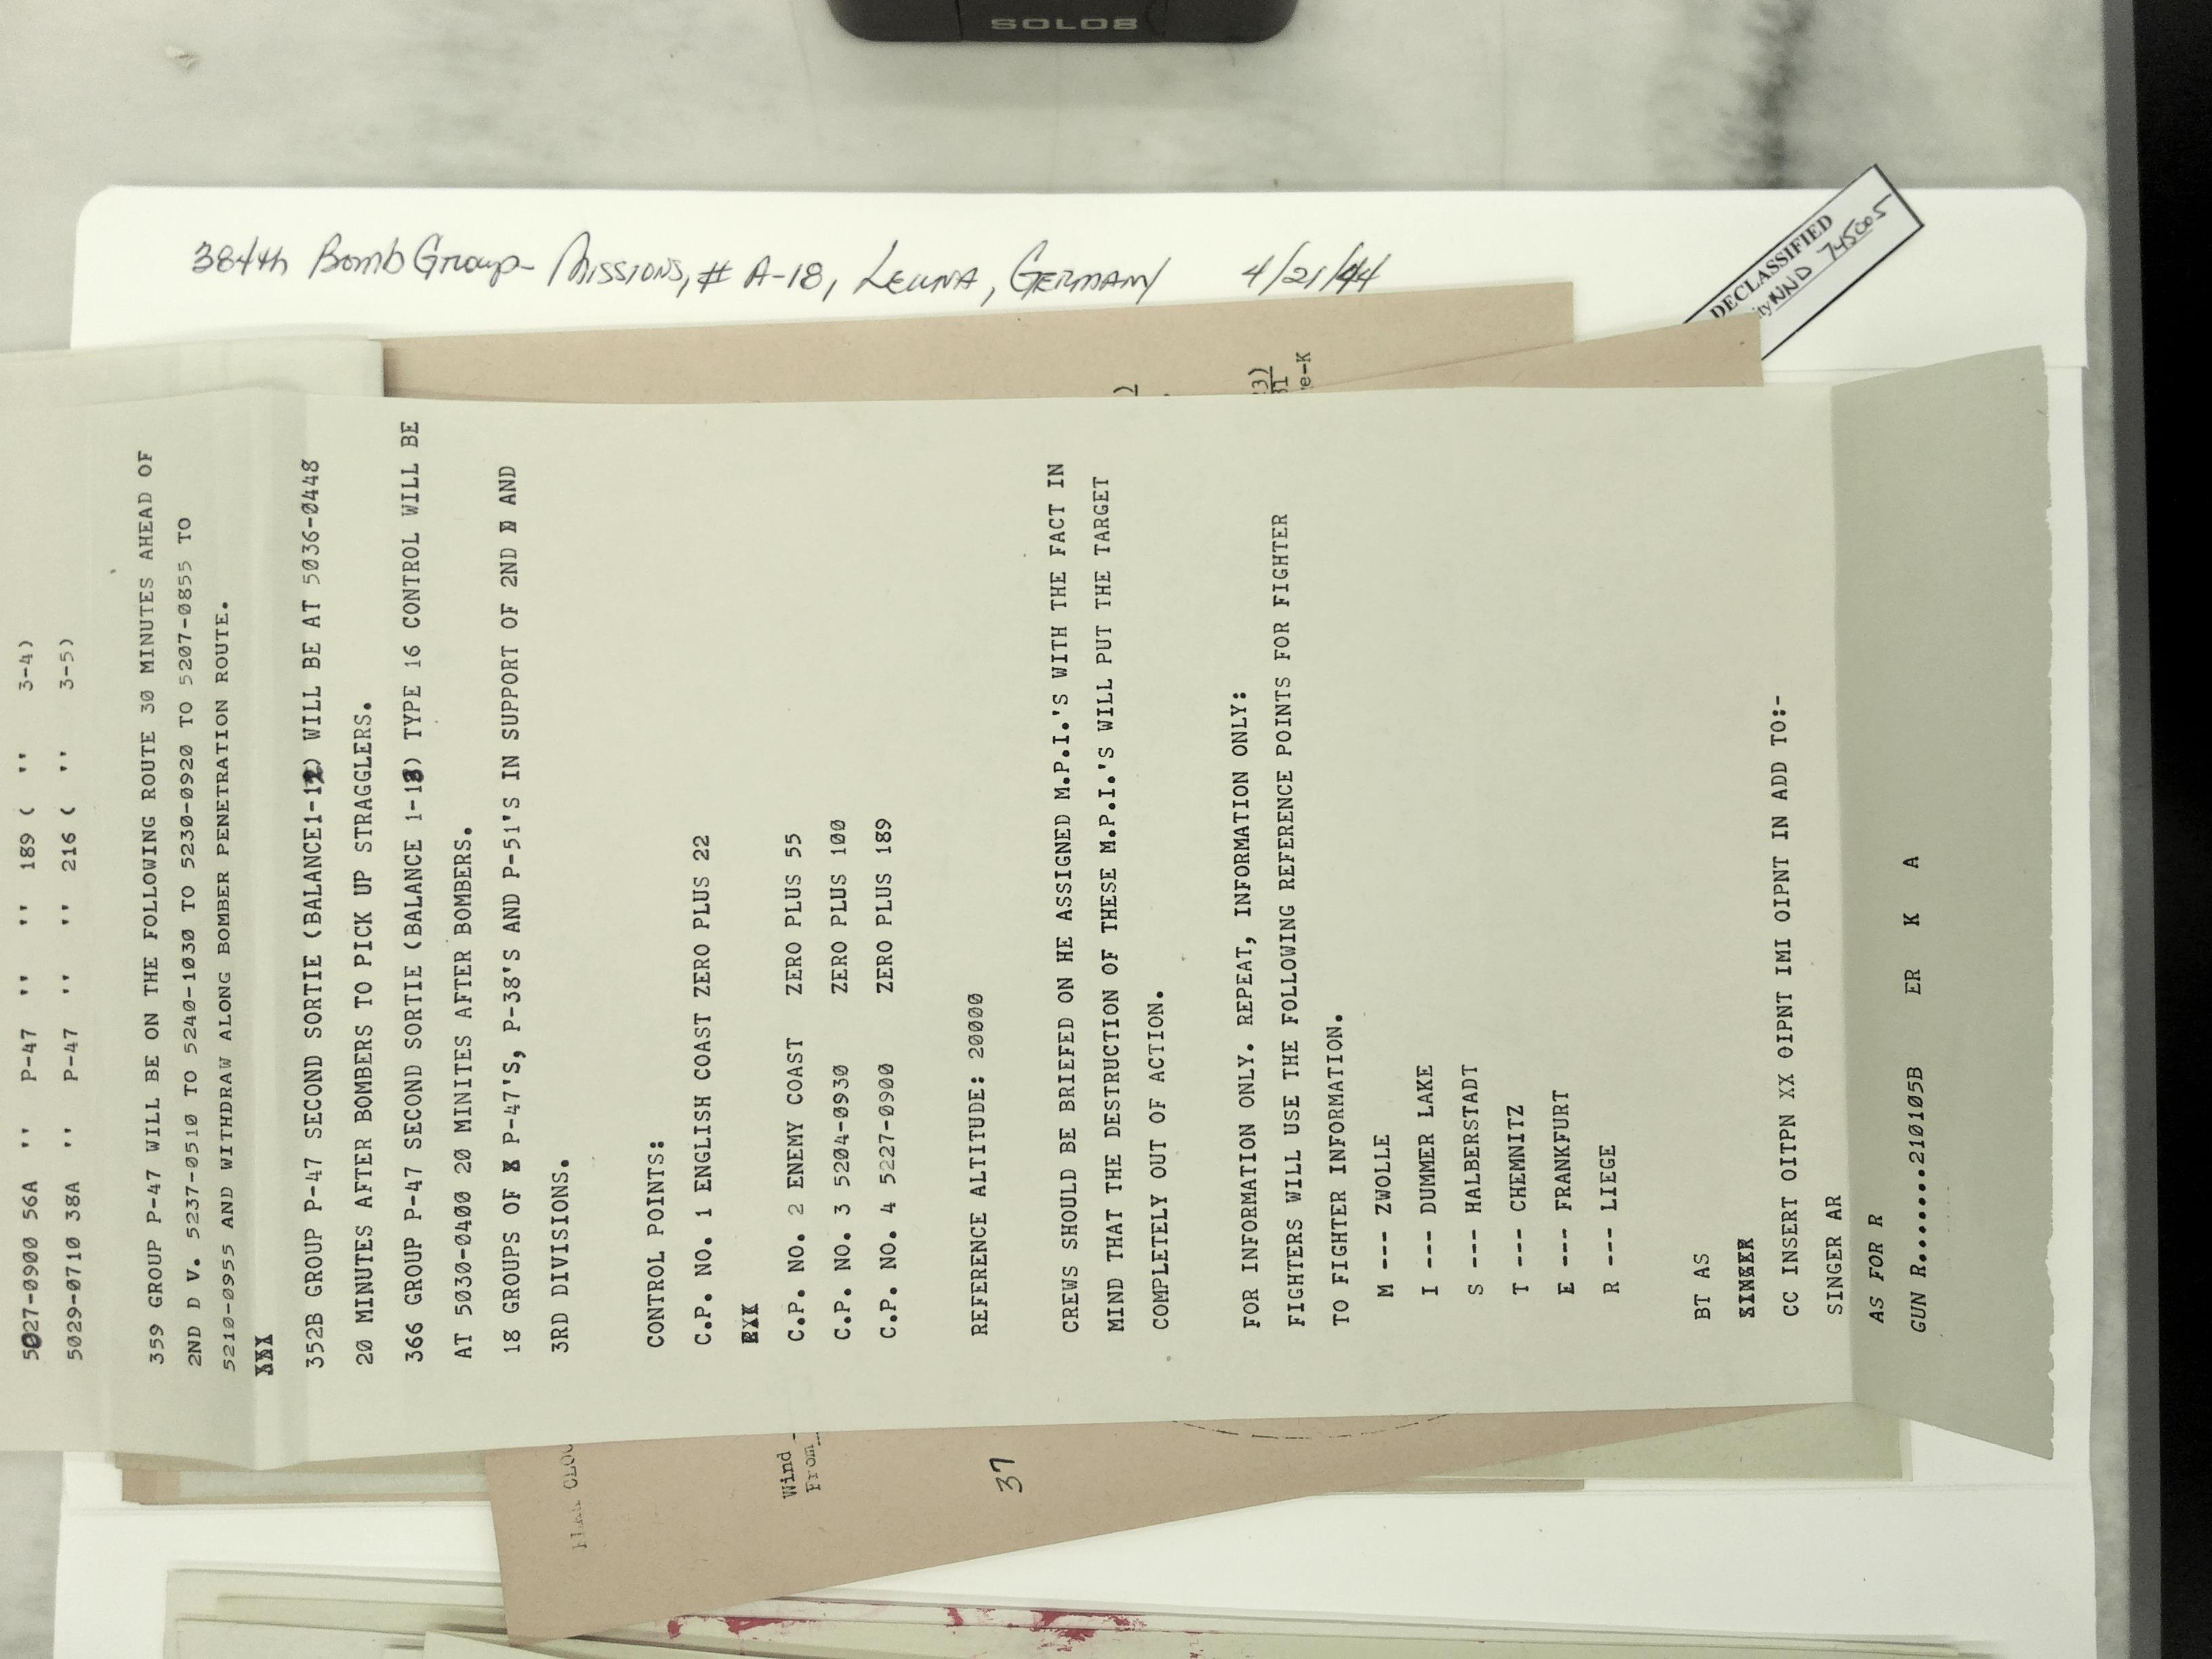 SOLO8
384th Bomb Group- Missions, # A-18, Leuna, Germany 4/21/44
DECLASSIFIED
ity NND 745005
3)
31
e-K
)
5027-0900 56A '' P-47 '' '' 189 ( '' 3-4)
5029-0710 38A '' P-47 '' '' 216 ( '' 3-5)
359 GROUP P-47 WILL BE ON THE FOLLOWING ROUTE 30 MINUTES AHEAD OF
2ND D V. 5237-0510 TO 5240-1030 TO 5230-0920 TO 5207-0855 TO
5210-0955 AND WITHDRAW ALONG BOMBER PENETRATION ROUTE.
XXX
352B GROUP P-47 SECOND SORTIE (BALANCE1-12) WILL BE AT 5036-0448
20 MINUTES AFTER BOMBERS TO PICK UP STRAGGLERS.
366 GROUP P-47 SECOND SORTIE (BALANCE 1-13) TYPE 16 CONTROL WILL BE
AT 5030-0400 20 MINITES AFTER BOMBERS.
18 GROUPS OF X P-47'S, P-38'S AND P-51'S IN SUPPORT OF 2ND AND
3RD DIVISIONS.
CONTROL POINTS:
C.P. NO. 1 ENGLISH COAST ZERO PLUS 22
C.P. NO. 2 ENEMY COAST ZERO PLUS 55
C.P. NO. 3 5204-0930 ZERO PLUS 100
C.P. NO. 4 5227-0900 ZERO PLUS 189
REFERENCE ALTITUDE: 20000
CREWS SHOULD BE BRIEFED ON HE ASSIGNED M.P.I.'S WITH THE FACT IN
MIND THAT THE DESTRUCTION OF THESE M.P.I.'S WILL PUT THE TARGET
COMPLETELY OUT OF ACTION.
FOR INFORMATION ONLY. REPEAT, INFORMATION ONLY:
FIGHTERS WILL USE THE FOLLOWING REFERENCE POINTS FOR FIGHTER
TO FIGHTER INFORMATION.
M --- ZWOLLE
I --- DUMMER LAKE
S --- HALBERSTADT
T --- CHEMNITZ
E --- FRANKFURT
R --- LIEGE
BT AS
CC INSERT OITPN XX OIPNT IMI OIPNT IN ADD TO:-
SINGER AR
AS FOR R
GUN R........210105B ER K A
Wind
From
37